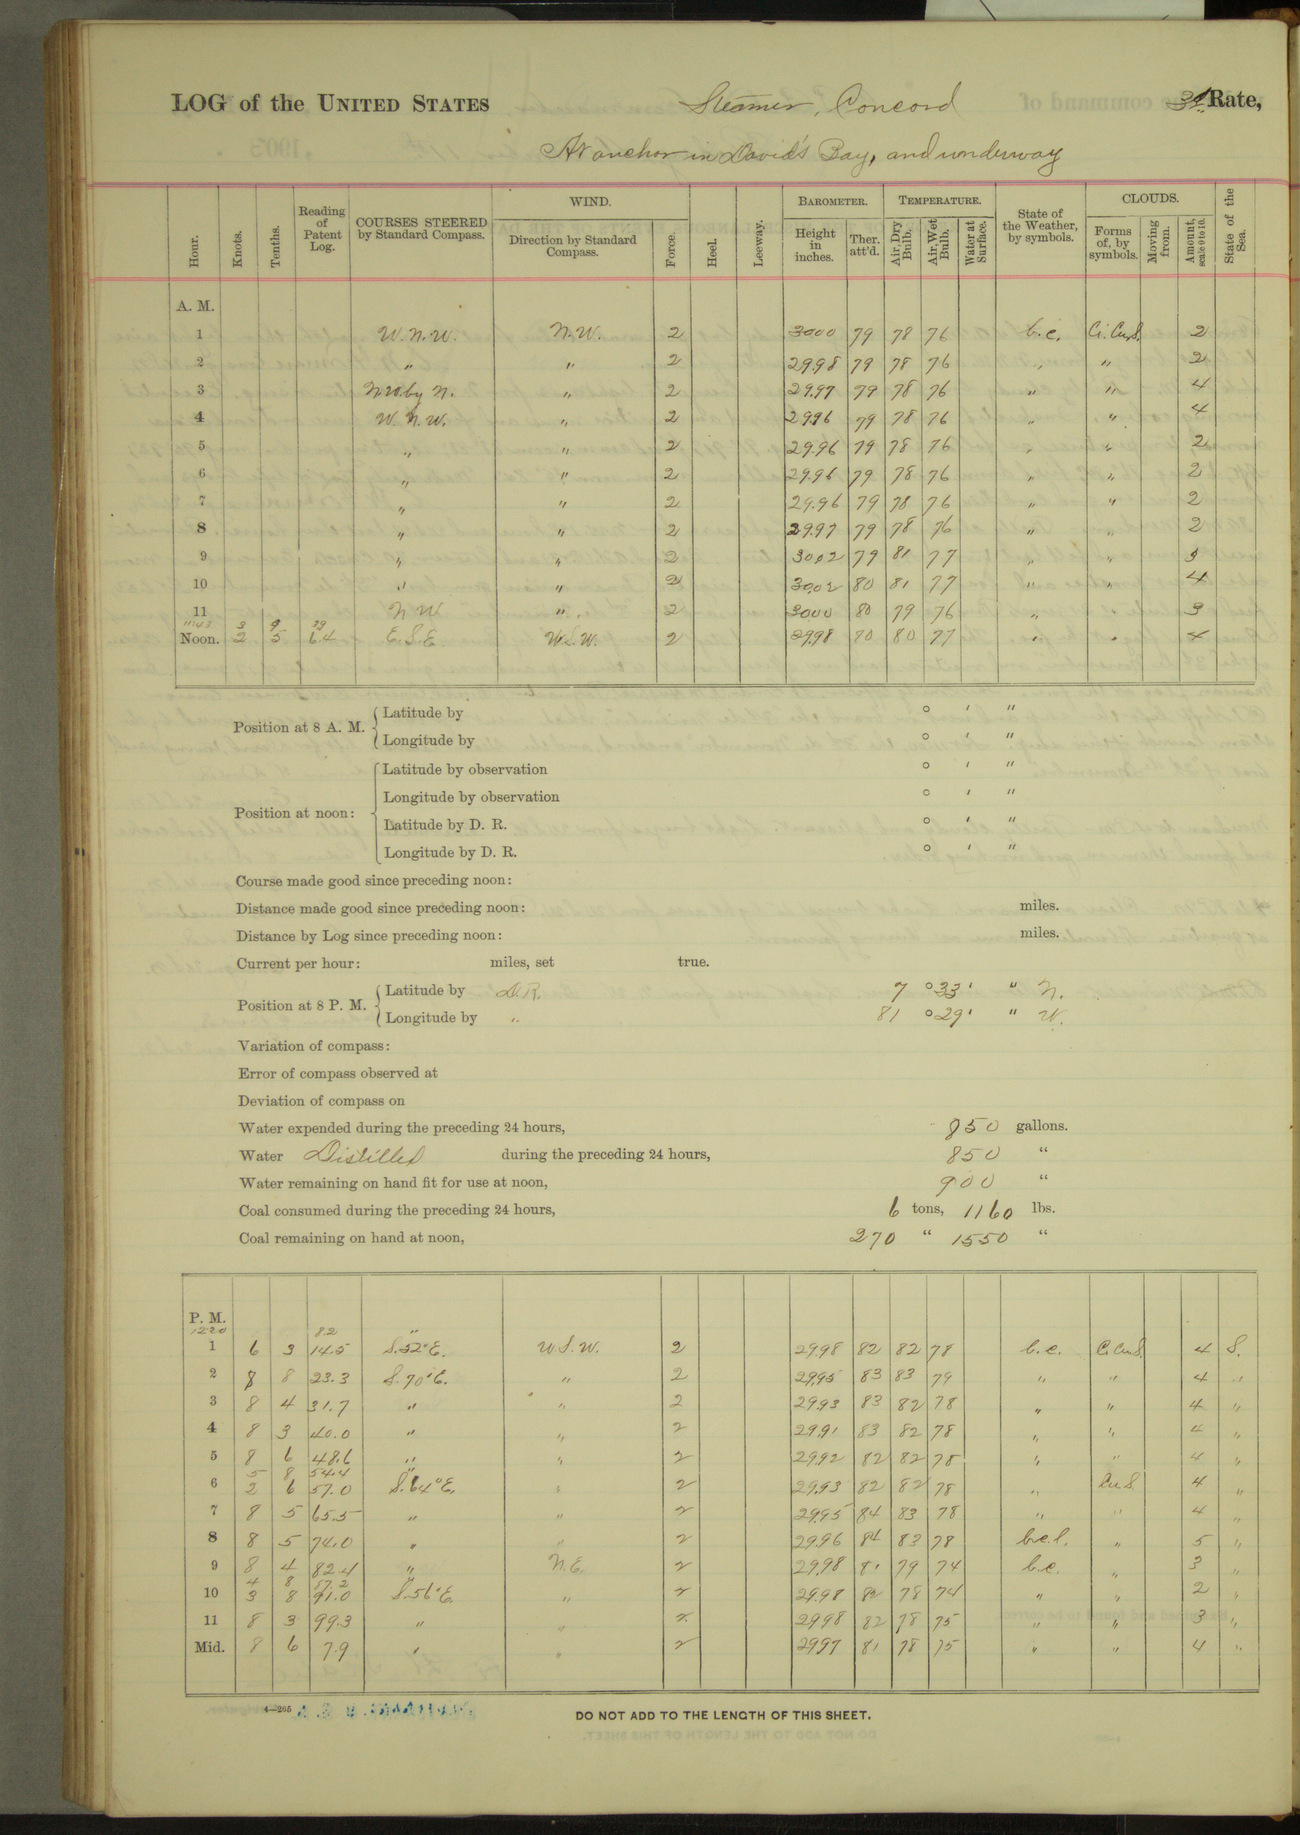 LOG of the UNITED STATES Steamer, Concord 3d Rate,
At anchor in David's Bay, and underway
Hour. Knots. Tenths. Reading of Patent Log. COURSES STEERED by Standard Compass. WIND. Direction by Standard Compass. Force. Heel. Leeway. BAROMETER. Height in inches. Ther. att'd. TEMPERATURE. Air, Dry Bulb. Air, Wet Bulb. Water at Surface. State of the Weather, by symbols. CLOUDS. Forms of, by symbols. Moving from. Amount, scale 0 to 10. State of the Sea.
A. M.
1 W.N.W. N.W. 2 3000 79 78 76 b.c. Ci.Cu.S. 2
2 " " 2 29.98 79 78 76 " " 2
3 NW by N. " 2 29.97 79 78 76 " " 4
4 W.N.W. " 2 2996 79 78 76 " " 4
5 " " 2 29.96 79 78 76 " " 2
6 " " 2 29.96 79 78 76 " " 2
7 " " 2 29.96 79 78 76 " " 2
8 " " 2 29.97 79 78 76 " " 2
9 " " 2 3002 79 81 77 " " 3
10 " " 2 3002 80 81 77 " " 4
11 N W " 2 3000 80 79 76 " " 3
11:43 3 9 39
Noon. 2 5 6.4 E.S.E. W.S.W. 2 2998 80 80 77 " " 4
Position at 8 A. M. Latitude by ° ' "
Longitude by ° ' "
Position at noon: Latitude by observation ° ' "
Longitude by observation ° ' "
Latitude by D. R. ° ' "
Longitude by D. R. ° ' "
Course made good since preceding noon:
Distance made good since preceding noon: miles.
Distance by Log since preceding noon: miles.
Current per hour: miles, set true.
Position at 8 P. M. Latitude by D.R. 7 ° 33 ' " N.
Longitude by " 81 ° 29 ' " W.
Variation of compass:
Error of compass observed at
Deviation of compass on
Water expended during the preceding 24 hours, 850 gallons.
Water Distilled during the preceding 24 hours, 850 "
Water remaining on hand fit for use at noon, 900 "
Coal consumed during the preceding 24 hours, 6 tons, 1160 lbs.
Coal remaining on hand at noon, 270 " 1550 "
P. M.
1220 8.2 "
1 6 3 14.5 S.52°E. W.S.W. 2 2998 82 82 78 b.c. C.Cu.S. 4 S.
2 8 8 23.3 S.70°E. " 2 2995 83 83 79 " " 4 "
3 8 4 31.7 " " 2 2993 83 82 78 " " 4 "
4 8 3 40.0 " " 2 29.91 83 82 78 " " 4 "
5 8 6 48.6 " " 2 2992 82 82 78 " " 4 "
5 8 54.4 "
6 2 6 57.0 S.64°E. " 2 2993 82 82 78 " Cu.S. 4 "
7 8 5 65.5 " " 2 2995 84 83 78 " " 4 "
8 8 5 74.0 " " 2 29.96 84 83 78 b.c.l. " 5 "
9 8 4 82.4 " N.E. 2 29.98 81 79 74 b.c. " 3 "
4 8 87.2 "
10 3 8 91.0 S.56°E. " 2 29.98 82 78 74 " " 2 "
11 8 3 99.3 " " 2 2998 82 78 75 " " 3 "
Mid. 8 6 7.9 " " 2 2997 81 78 75 " " 4 "
4—265
DO NOT ADD TO THE LENGTH OF THIS SHEET.